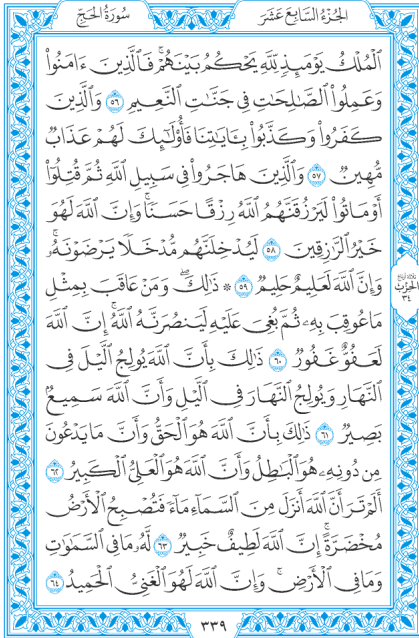 سُورَةُ الحَجِّ
الجُزْءُ السَّابِعَ عَشَرَ
ٱلْمُلْكُ يَوْمَئِذٍ لِّلَّهِ يَحْكُمُ بَيْنَهُمْ ۚ فَٱلَّذِينَ ءَامَنُوا۟
وَعَمِلُوا۟ ٱلصَّـٰلِحَـٰتِ فِى جَنَّـٰتِ ٱلنَّعِيمِ ٥٦ وَٱلَّذِينَ
كَفَرُوا۟ وَكَذَّبُوا۟ بِـَٔايَـٰتِنَا فَأُو۟لَـٰٓئِكَ لَهُمْ عَذَابٌ
مُّهِينٌ ٥٧ وَٱلَّذِينَ هَاجَرُوا۟ فِى سَبِيلِ ٱللَّهِ ثُمَّ قُتِلُوٓا۟
أَوْ مَاتُوا۟ لَيَرْزُقَنَّهُمُ ٱللَّهُ رِزْقًا حَسَنًا ۚ وَإِنَّ ٱللَّهَ لَهُوَ
خَيْرُ ٱلرَّٰزِقِينَ ٥٨ لَيُدْخِلَنَّهُم مُّدْخَلًا يَرْضَوْنَهُۥ ۗ
وَإِنَّ ٱللَّهَ لَعَلِيمٌ حَلِيمٌ ٥٩ ۞ ذَٰلِكَ ۖ وَمَنْ عَاقَبَ بِمِثْلِ
مَا عُوقِبَ بِهِۦ ثُمَّ بُغِىَ عَلَيْهِ لَيَنصُرَنَّهُ ٱللَّهُ ۗ إِنَّ ٱللَّهَ
لَعَفُوٌّ غَفُورٌ ٦٠ ذَٰلِكَ بِأَنَّ ٱللَّهَ يُولِجُ ٱلَّيْلَ فِى
ٱلنَّهَارِ وَيُولِجُ ٱلنَّهَارَ فِى ٱلَّيْلِ وَأَنَّ ٱللَّهَ سَمِيعٌۢ
بَصِيرٌ ٦١ ذَٰلِكَ بِأَنَّ ٱللَّهَ هُوَ ٱلْحَقُّ وَأَنَّ مَا يَدْعُونَ
مِن دُونِهِۦ هُوَ ٱلْبَـٰطِلُ وَأَنَّ ٱللَّهَ هُوَ ٱلْعَلِىُّ ٱلْكَبِيرُ ٦٢
أَلَمْ تَرَ أَنَّ ٱللَّهَ أَنزَلَ مِنَ ٱلسَّمَآءِ مَآءً فَتُصْبِحُ ٱلْأَرْضُ
مُخْضَرَّةً ۗ إِنَّ ٱللَّهَ لَطِيفٌ خَبِيرٌ ٦٣ لَّهُۥ مَا فِى ٱلسَّمَـٰوَٰتِ
وَمَا فِى ٱلْأَرْضِ ۗ وَإِنَّ ٱللَّهَ لَهُوَ ٱلْغَنِىُّ ٱلْحَمِيدُ ٦٤
الحِزْب
٣٤
٣٣٩